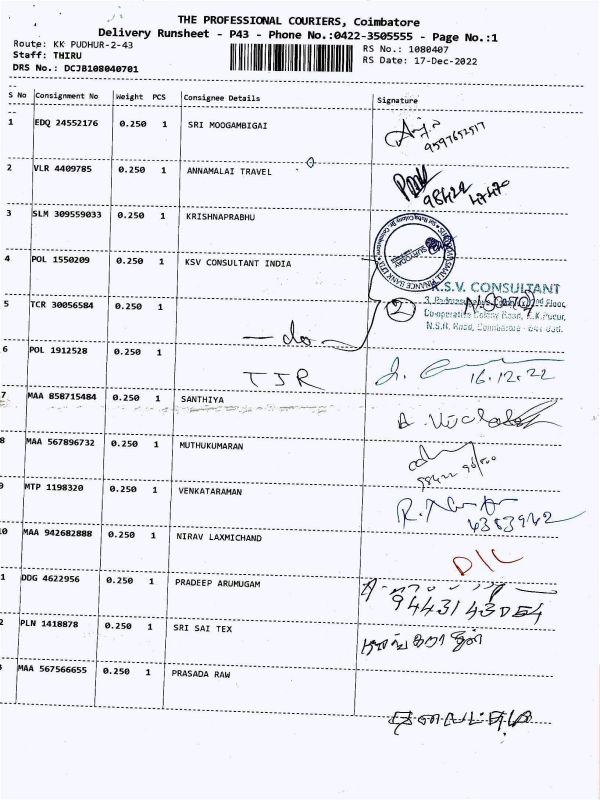 THE PROFESSIONAL COURIERS, Coimbatore
Delivery Runsheet - P43 - Phone No.:0422-3505555 - Page No.:1
Route: KK PUDHUR-2-43
RS No.: 1080407
Staff: THIRU
RS Date: 17-Dec-2022
DRS No.: DCJB108040701
S No Consignment No Weight PCS Consignee Details Signature
1 EDQ 24552176 0.250 1 SRI MOOGAMBIGAI
9597652517
2 VLR 4409785 0.250 1 ANNAMALAI TRAVEL
98422 47470
3 SLM 309559033 0.250 1 KRISHNAPRABHU
4 POL 1550209 0.250 1 KSV CONSULTANT INDIA
K.S.V. CONSULTANT
5 TCR 30056584 0.250 1 — do — 2
Co-operative Colony Road, K.K.Pudur,
N.S.R. Road, Coimbatore - 641 038.
6 POL 1912528 0.250 1 TJR
16.12.22
7 MAA 858715484 0.250 1 SANTHIYA
8 MAA 567896732 0.250 1 MUTHUKUMARAN
9 MTP 1198320 0.250 1 VENKATARAMAN
6383942
10 MAA 942682888 0.250 1 NIRAV LAXMICHAND D/L
1 DDG 4622956 0.250 1 PRADEEP ARUMUGAM
9443143054
2 PLN 1418878 0.250 1 SRI SAI TEX
3 MAA 567566655 0.250 1 PRASADA RAW